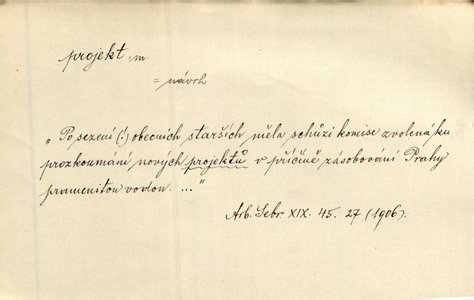 projekt, m.
= návrh
„Po sezení (!) obecních starších měla schůzi komise zvolená ku
prozkoumání nových projektů v příčině zásobování Prahy
pramenitou vodou. ..."
Arb. Sebr. XIX. 45. 27 (1906).